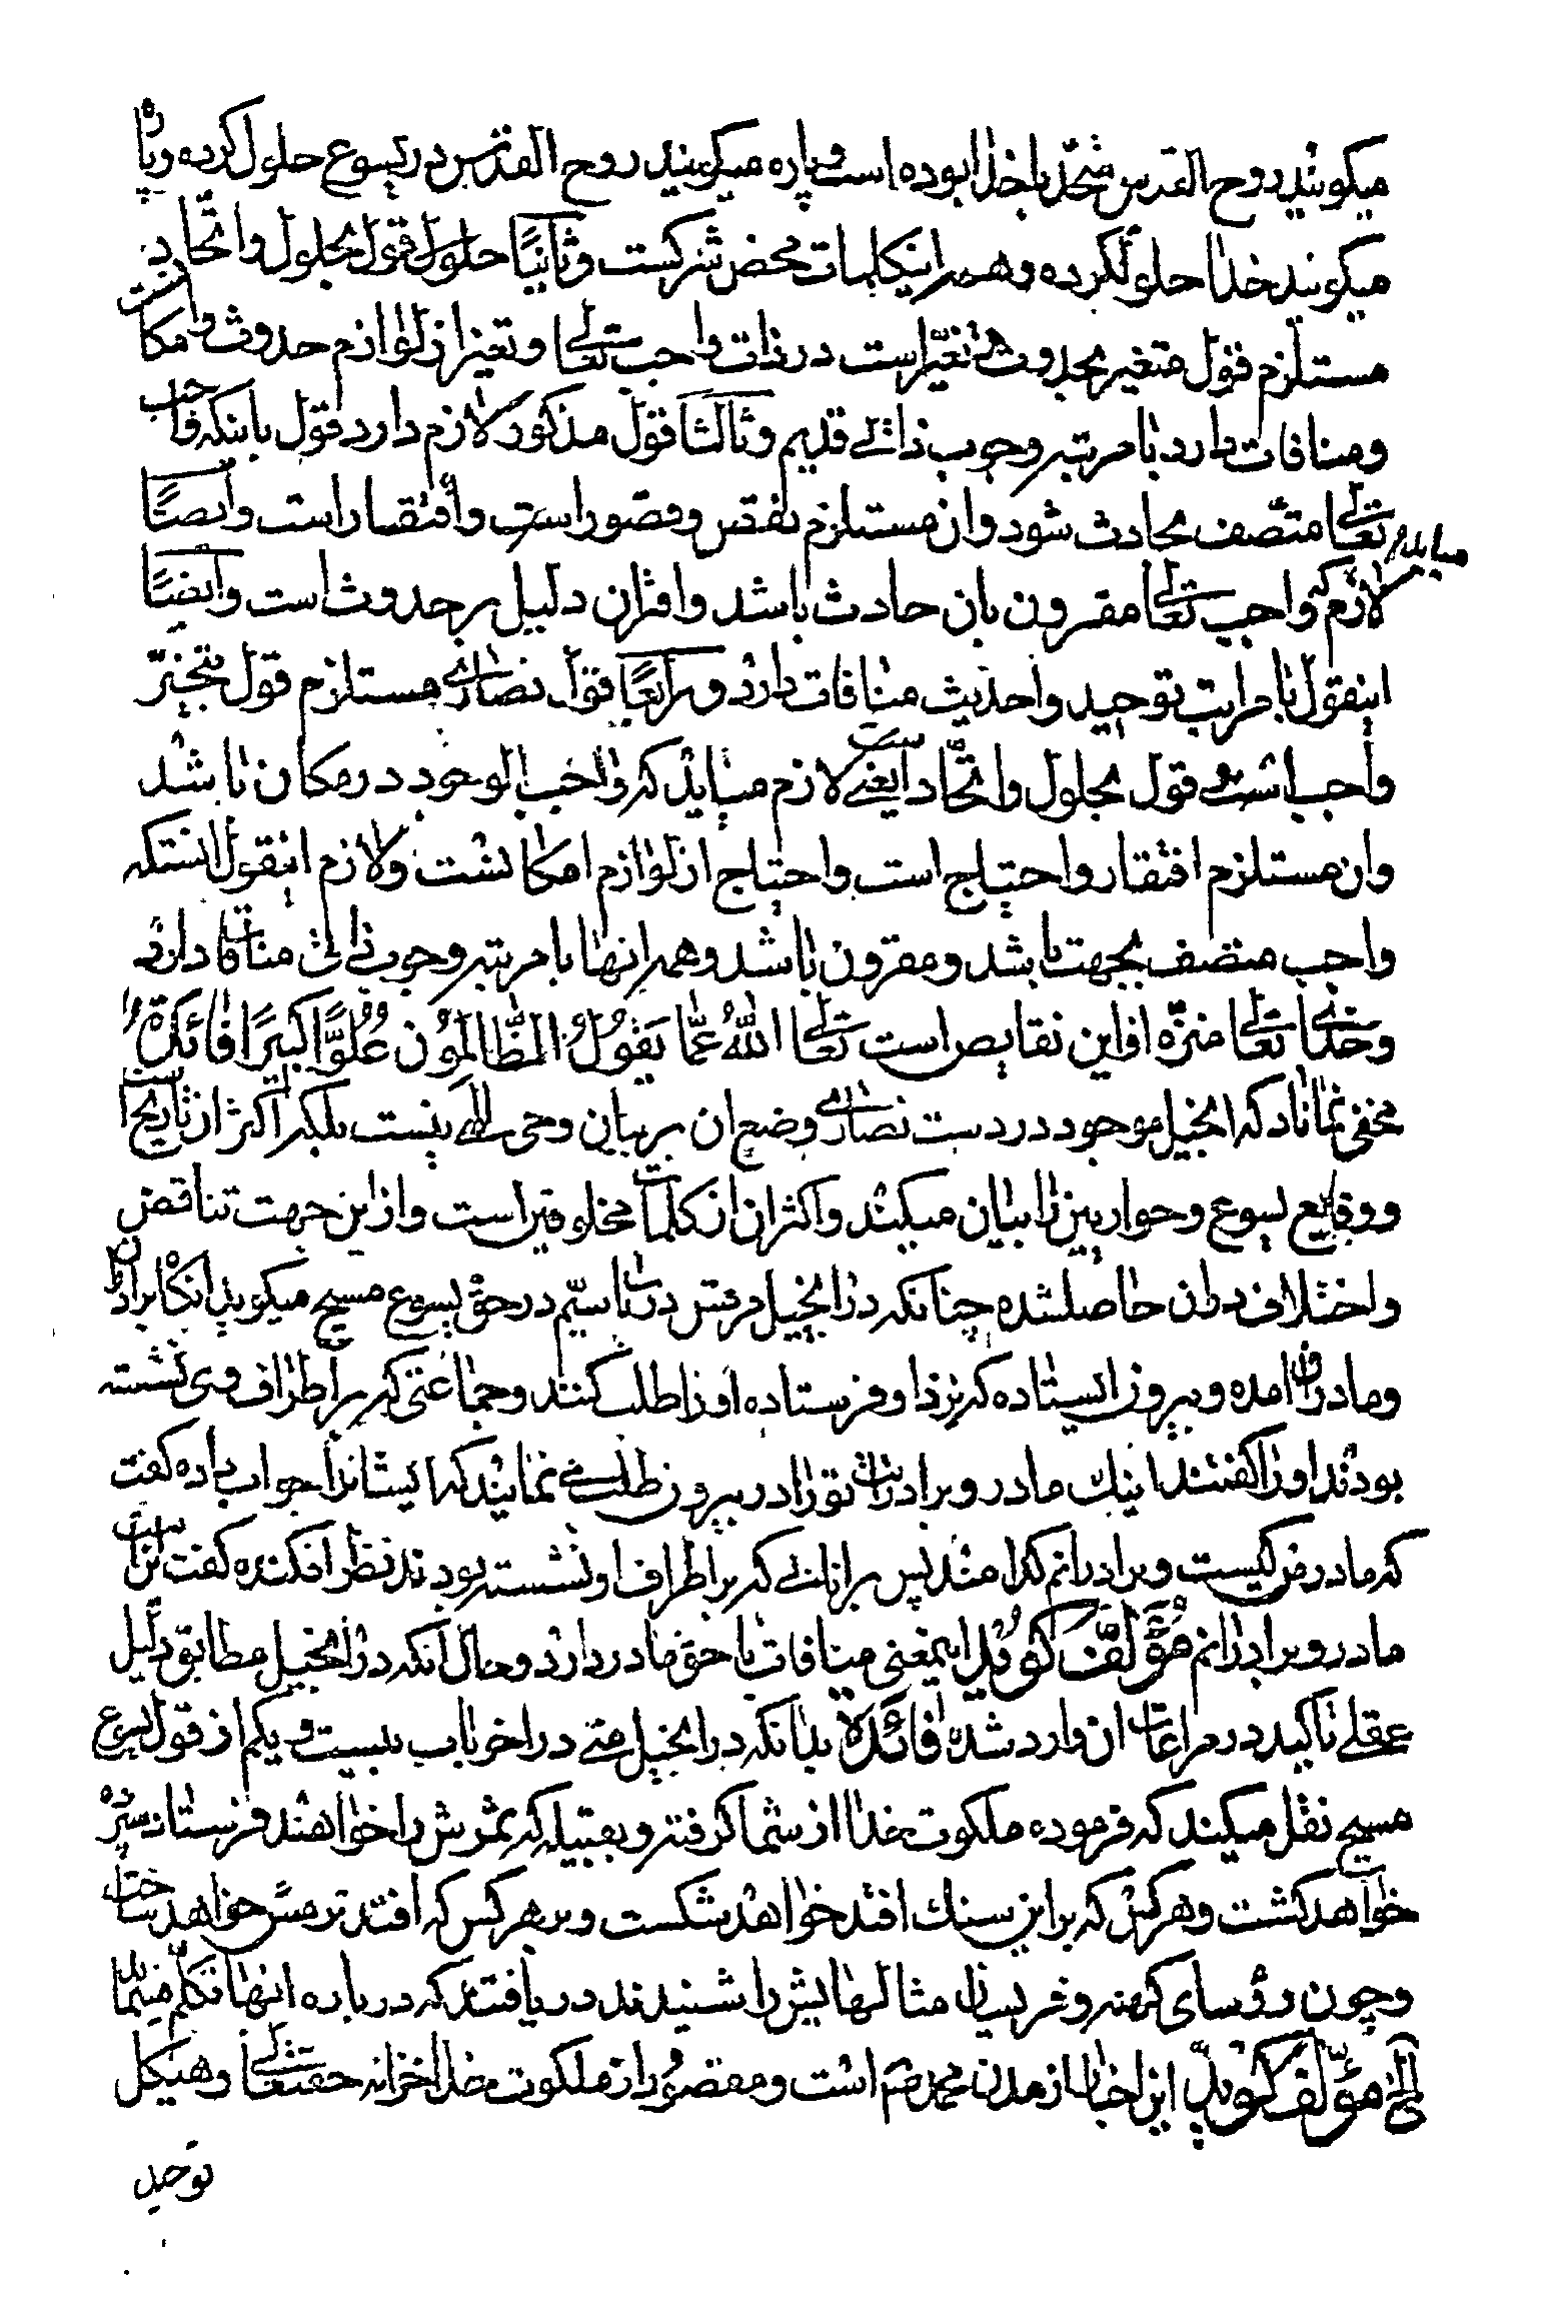 میکویند روح القدس متّحد با خدا بوده است و پاره میکویند روح القدس در یسوع حلول کرده و پاره
میکویند خدا حلولکرده و همه اینکلمات محض شرکست و ثانیًا حلول قول بحلول و اتّحاد
مستلزم قول متغیر بحدوث تغیّر است در ذات واجب تعالی و تغیر از لوازم حدوث و امکانست
و منافات دارد با مرتبه وجوب ذاتی قدیم و ثالثًا قول مذکور لازم دارد قول باینکه واجب
تعالی متّصف بحادث شود و ان مستلزم نقص و قصور است و افتقار است و ایضًا
لازم میاید که واجب تعالی مقرون بان حادث باشد و اقتران دلیل بر حدوث است و ایضًا
اینقول با مراتب توحید واحدیث منافات دارد و رابعًا قول نصاری مستلزم قول بتحیّز
واجب است و قول بحلول و اتّحاد یعنی لازم میاید که واجب الوجود در مکان باشد
و ان مستلزم افتقار و احتیاج است و احتیاج از لوازم امکانست و لازم اینقول انستکه
واجب متصف بجهت باشد و مقرون باشد و همه اینها با مرتبه وجوب ذاتی منافات دارند
و خدای تعالی منزّه از این نقایص است تعالی اللهُ عمّا یَقُولُ الظّالِمُون عُلُوًّا کبیرًا فائدة
مخفی نماناد که انجیل موجود در دست نصاری وضع ان بر بیان وحی الهی نیست بلکه اکثر از تاریخ است
و وقایع یسوع و حواریین را بیان میکند و اکثر ان از کلمات مخلوقین است و از این جهت تناقض
و اختلاف در ان حاصلشده چنانکه در انجیل مرقس در باب سیّم در حق یسوع مسیح میکوید انکاه برادران
و مادر ان امده و بیرون ایستاده که نزد او فرستاده او را طلب کنند و جماعتی که بر اطراف وی نشسته
بودند او را کفتند اینك مادر و برادران تو را در بیرون طلب می نمایند که ایشانرا جواب داده کفت
که مادر من کیست و برادرانم کدامند پس بر انانی که بر اطراف او نشسته بودند نظر افکنده کفت اینست
مادر و برادرانم مؤلّف کوید اینمعنی منافات با حق مادر دارد و حال انکه در انجیل مطابق دلیل
عقلی تاکید در مراعات ان وارد شده فائدة بدانکه در انجیل متی در اخر باب بیست و یکم از قول یسوع
مسیح نقل میکند که فرموده ملکوت خدا از شما کرفته و بقبیله که ثمرش را خواهند فرستاد سپرده
خواهد کشت و هر کس که بر این سنك افتد خواهد شکست و بر هر کس که افتد نرمش خواهد ساخت
و چون رؤسای کهنه و فریسیان مثالهایش را شنیدند دریافتند که درباره انها تکلّم مینماید
الخ مؤلّف کوید این اخبار از امدن محمد ص است و مقصود از ملکوت خدا خزانه حقتعالی و هیکل
توحید